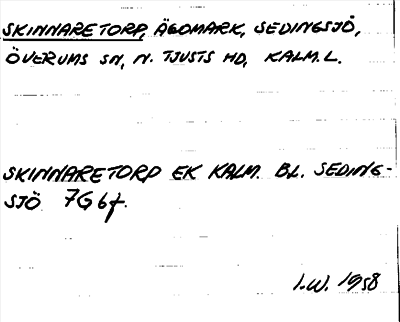 SKINNARETORP, ÄGOMARK, SEDINGSJÖ,
ÖVERUMS SN, N. TJUSTS HD, KALM. L.
SKINNARETORP EK KALM. BL. SEDING-
SJÖ 7G 6f.
I.W. 1958